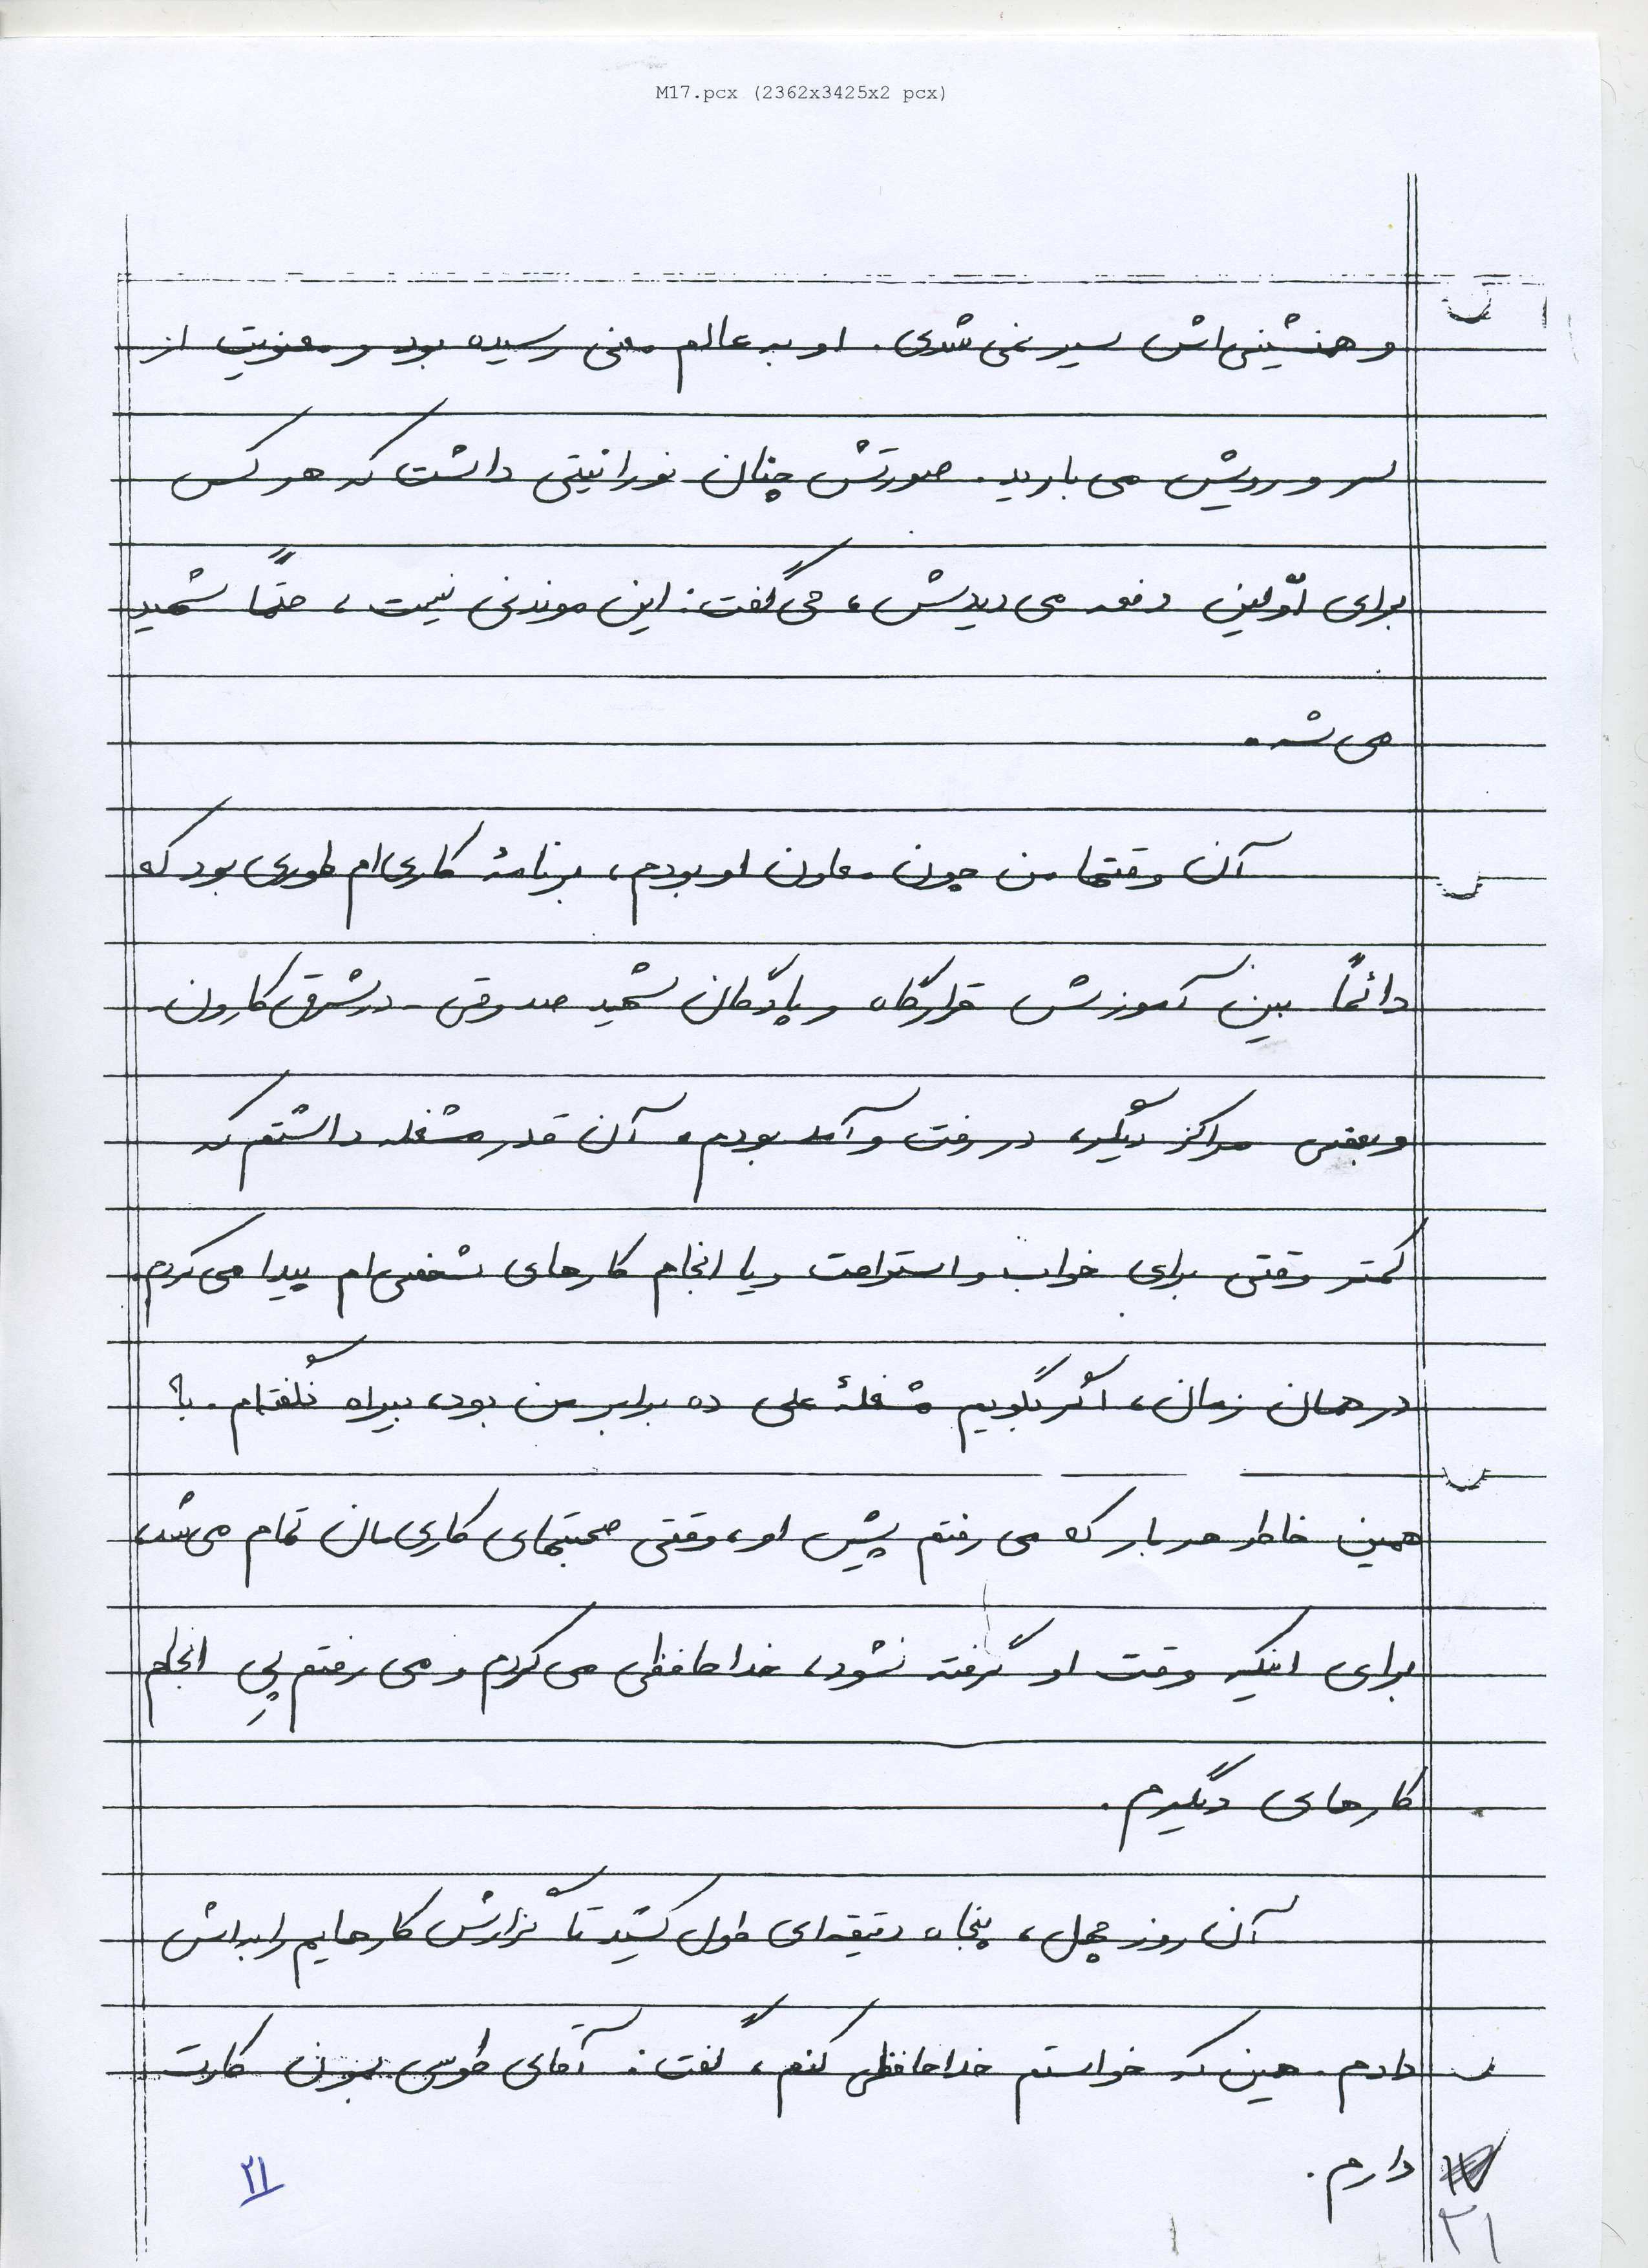 M17.pcx (2362x3425x2 pcx)
و همنشینی‌اش سیر نمی‌شدی. او به عالم معنی رسیده بود و معنویت از
سر و رویش می‌بارید. صورتش چنان نورانیتی داشت که هر کس
برای اوّلین دفعه می‌دیدش، می‌گفت: این موندنی نیست، حتماً شهید
می‌شه.
آن وقتها من چون معاون او بودم، برنامهٔ کاری‌ام طوری بود که
دائماً بین آموزش قرارگاه و پادگان شهید صدوقی - در شرق کارون -
و بعضی مراکز دیگر، در رفت و آمد بودم. آن قدر مشغله داشتم که
کمتر وقتی برای خواب و استراحت و یا انجام کارهای شخصی‌ام پیدا می‌کردم.
در همان زمان، اگر بگویم مشغلهٔ علی ده برابر من بود، بیراه نگفته‌ام. با
همین خاطر هر بار که می‌رفتم پیش او، وقتی صحبتهای کاری‌مان تمام می‌شد،
برای اینکه وقت او گرفته نشود، خداحافظی می‌کردم و می‌رفتم پیِ انجام
کارهای دیگرم.
آن روز چهل، پنجاه دقیقه‌ای طول کشید تا گزارش کارهایم را بداش
دادم. همین که خواستم خداحافظی کنم، گفت: آقای طوسی بمون کارت
دارم.
۲۱
۲۱